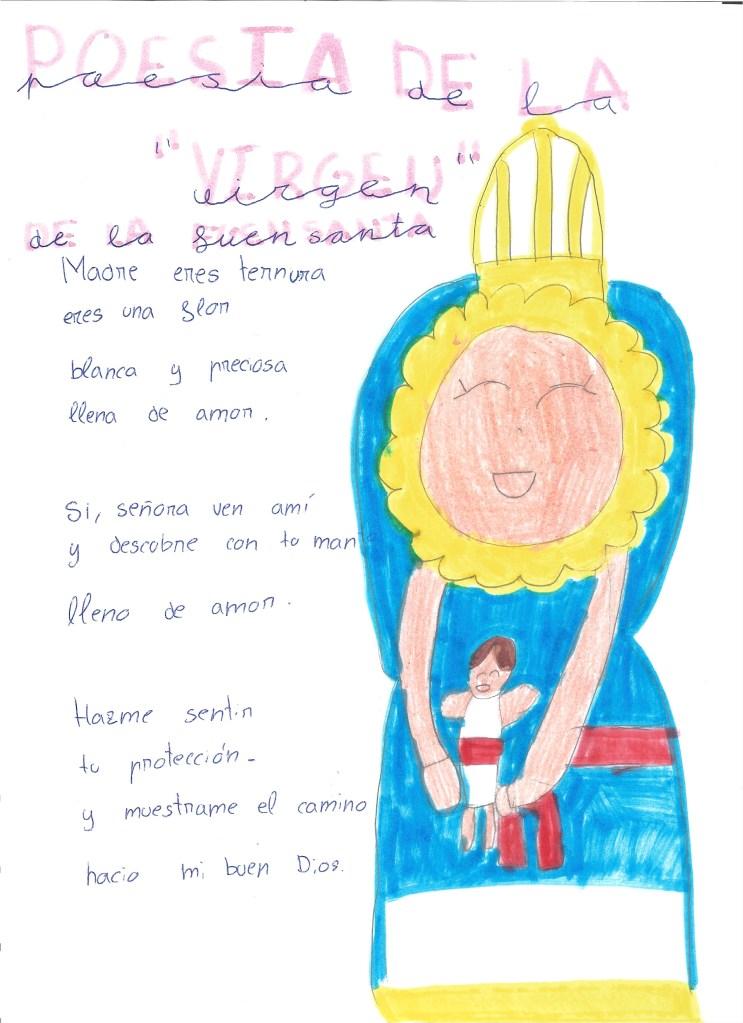 POESIA DE LA
poesia de la
"VIRGEN"
virgen
DE LA FUENSANTA
de la fuensanta
Madre eres ternura
eres una flor
blanca y preciosa
llena de amor.
Si, señora ven amí
y descubre con tu manto
lleno de amor.
Hazme sentir
tu protección-
y muestrame el camino
hacia mi buen Dios.